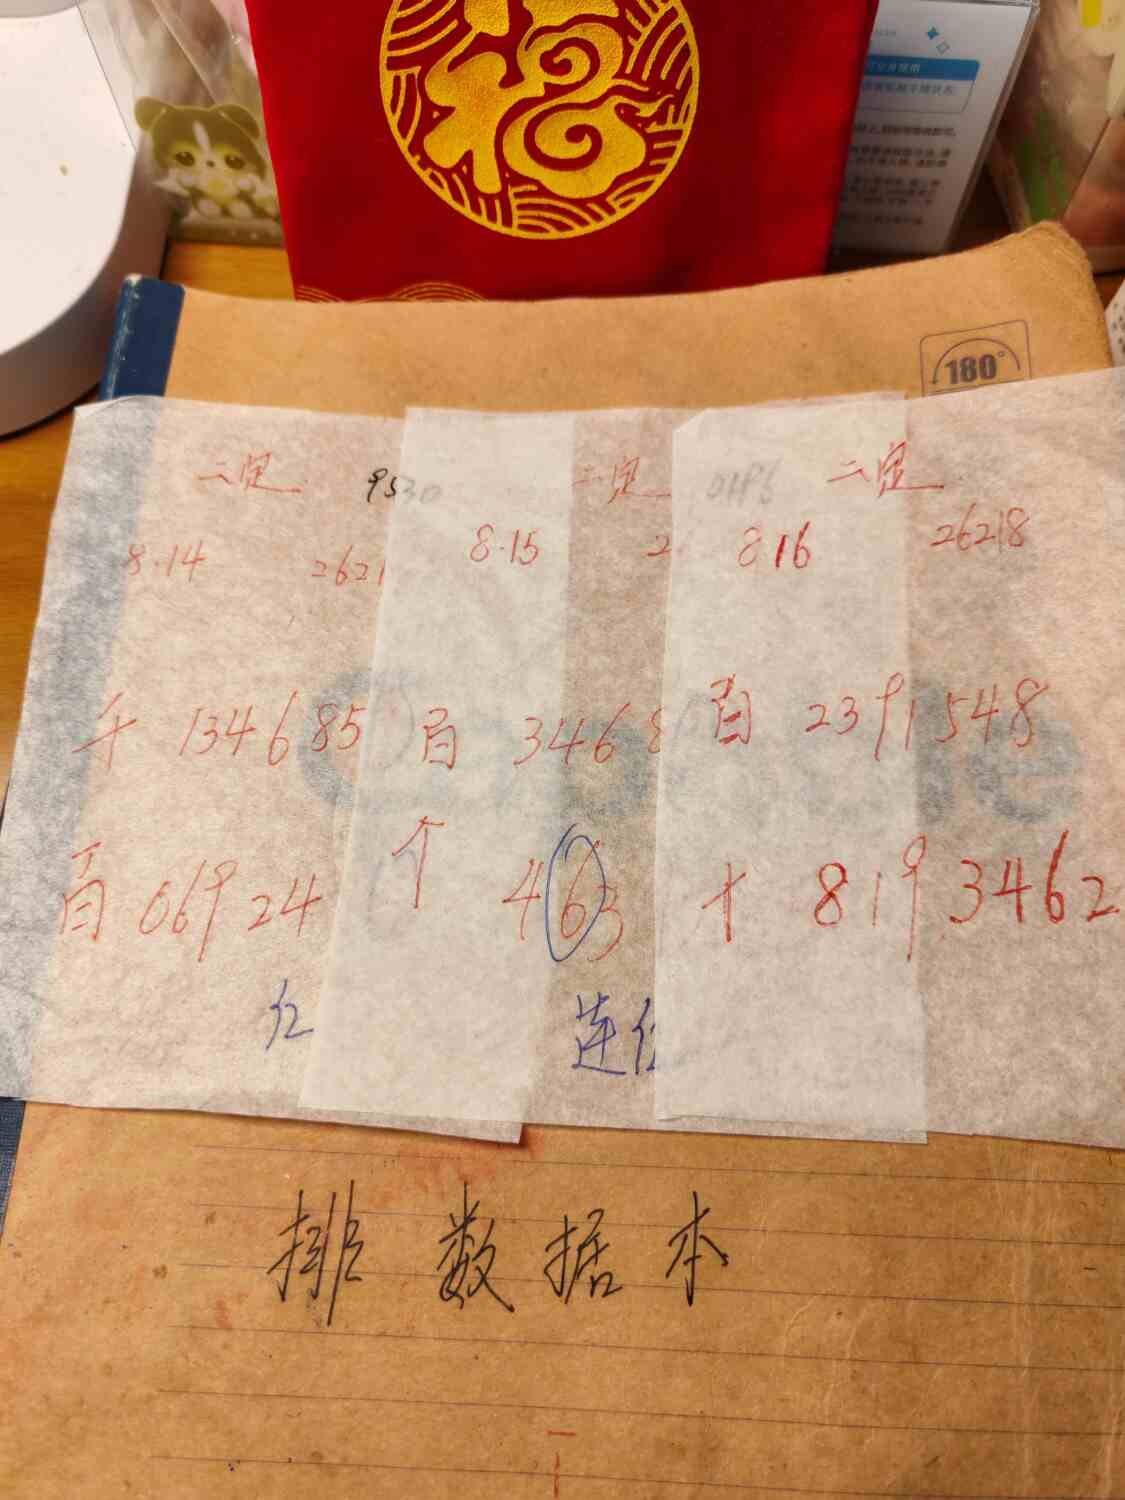 福
180°
二定 9530
8.14 2621
千 134685
百 06924
红
二定
8.15 2
百 3468
个 463
连红
二定
816 26218
百 2391548
十 8193462
排数据本